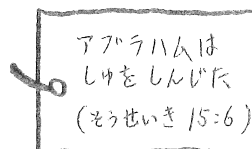 アブラハムは
しゅをしんじた
(そうせいき 15:6)